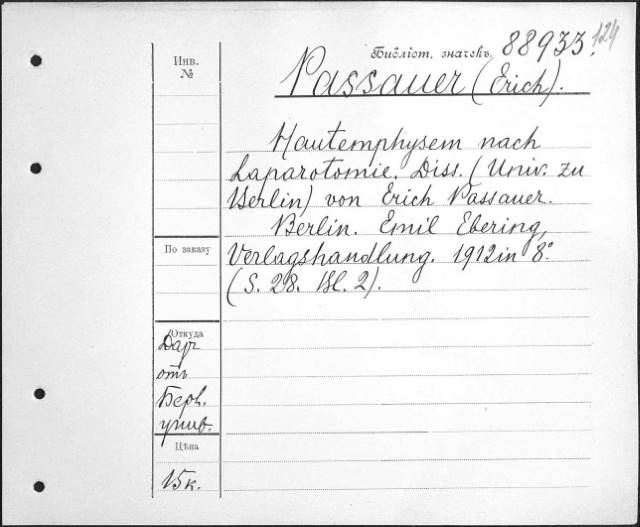 Инв.
№
Библіот. значекъ 88933.
124
Passauer (Erich).
Hautemphysem nach
Laparotomie. Diss. (Univ. zu
Berlin) von Erich Passauer.
Berlin. Emil Ebering,
Verlagshandlung. 1912 in 8.º
(S. 28. Bl. 2).
По заказу
Откуда
Даръ
отъ
Берл.
унив.
Цѣна
15 к.